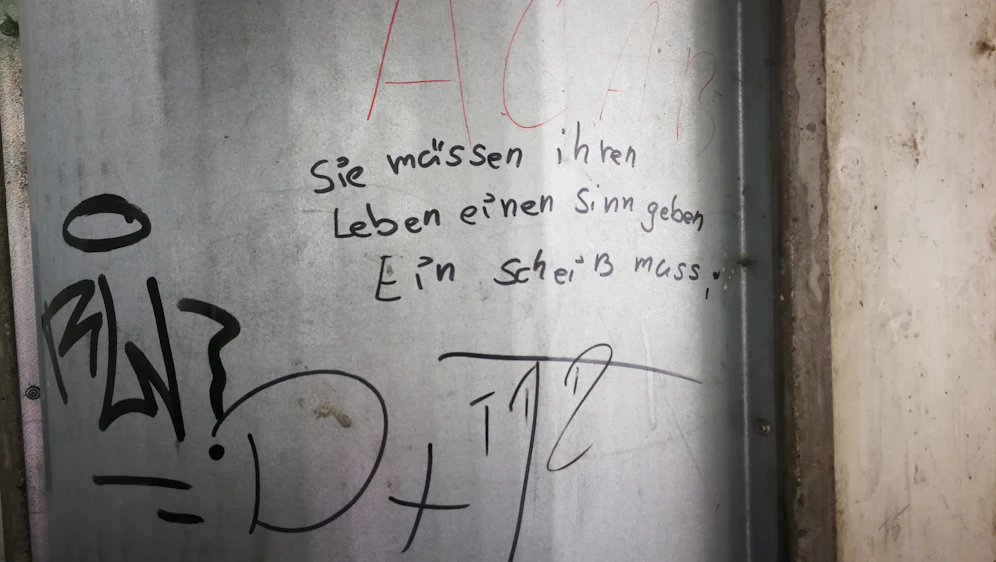 ACAB
Sie müssen ihren
Leben einen Sinn geben
Ein scheiß muss,